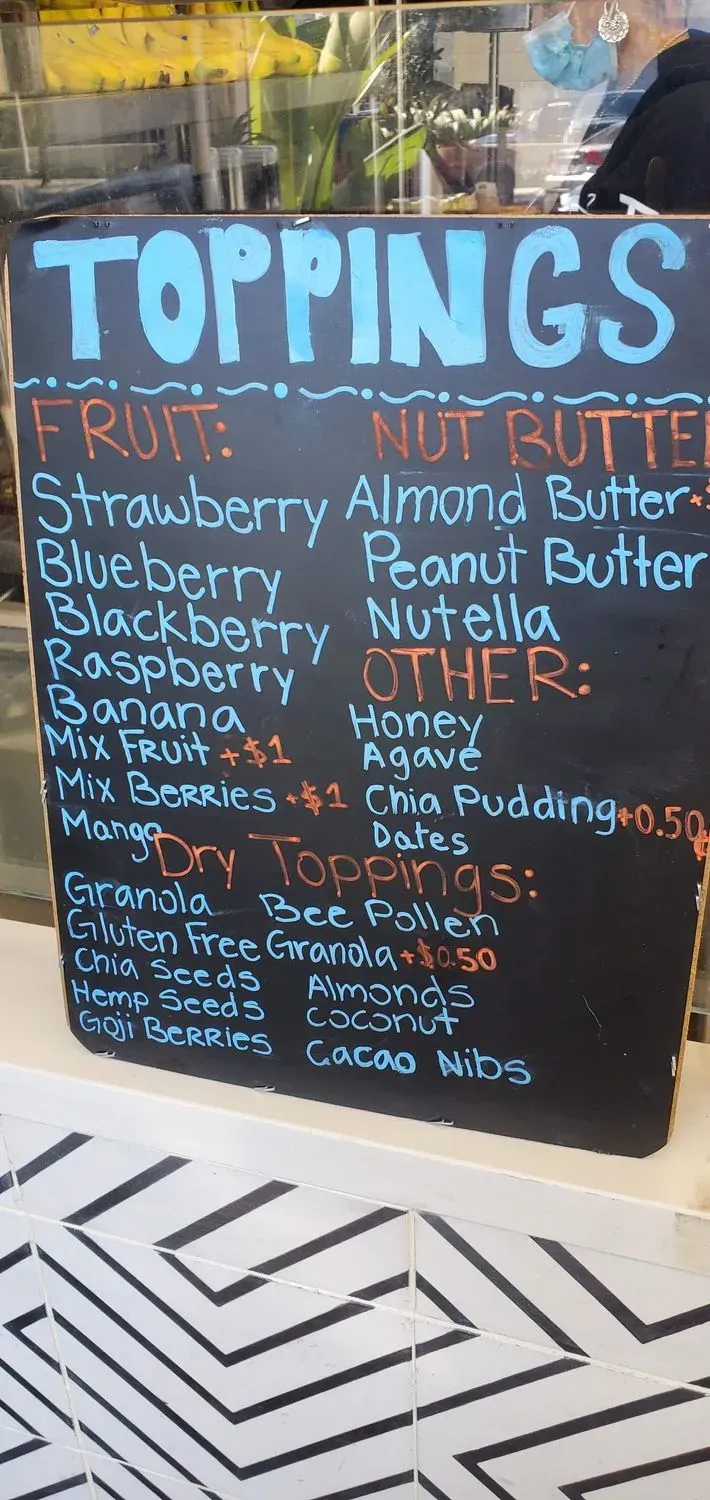 TOPPINGS
FRUIT:
Strawberry
Blueberry
Blackberry
Raspberry
Banana
Mix Fruit +$1
Mix Berries +$1
Mango
NUT BUTTE
Almond Butter +
Peanut Butter
Nutella
OTHER:
Honey
Agave
Chia Pudding +0.50¢
Dates
Dry Toppings:
Granola
Bee Pollen
Gluten Free Granola +$0.50
Chia Seeds
Almonds
Hemp Seeds
Coconut
Goji Berries
Cacao Nibs